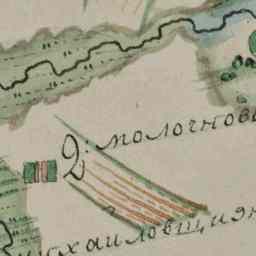 2: молочновы
ихаиловщизн